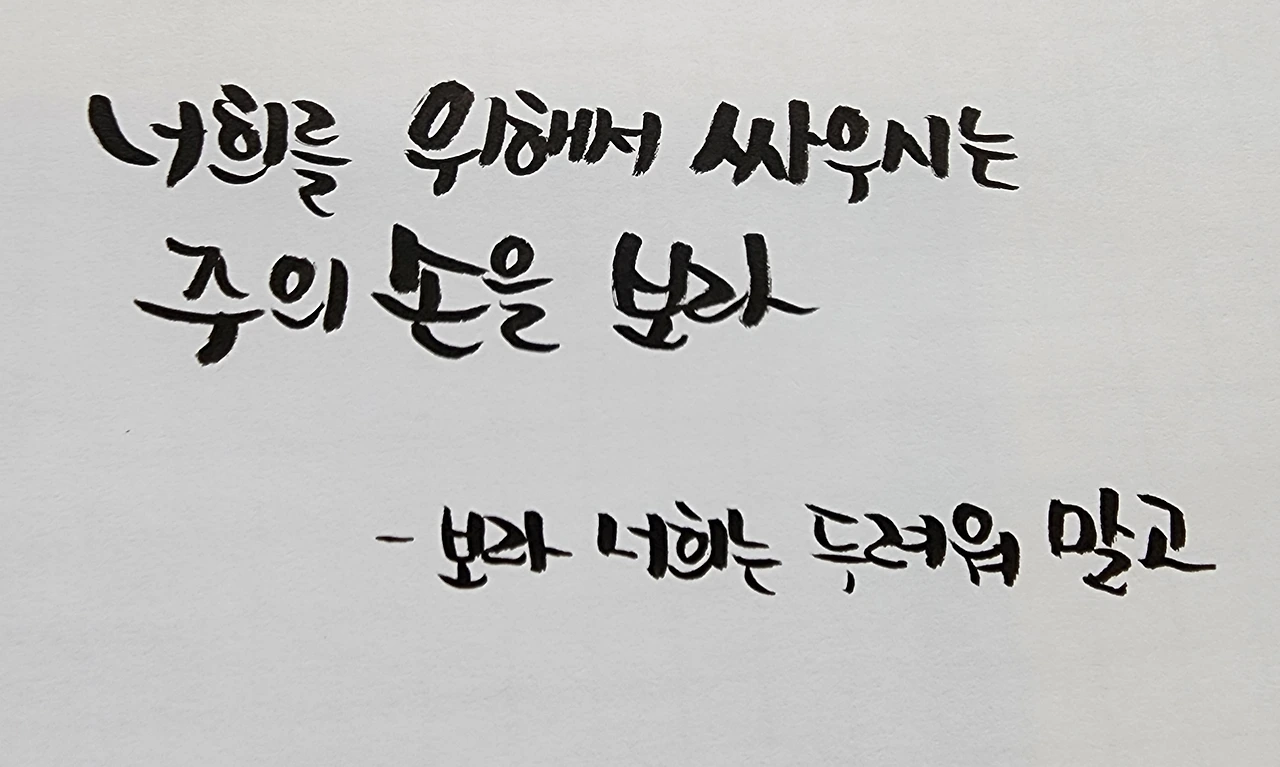 너희를 위해서 싸우시는
주의 손을 보라
- 보라 너희는 두려워 말고